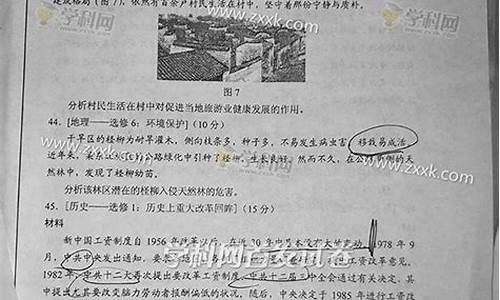 建筑格局（图7），依然有百余户村民生活在村中，坚守着那份宁静与质朴。
学科网
www.zxxk.com
图7
分析村民生活在村中对促进当地旅游业健康发展的作用。
44. [地理——选修6：环境保护]（10分）
干旱区的柽柳为耐旱灌木，侧向枝条多，种子多，不易发生病虫害，移栽易成活
近年来，
公路绿化中引种了柽柳，生长良好。然而不久，在公路两侧的天
然林中，发现了柽柳幼苗。
分析该林区潜在的柽柳入侵天然林的危害。
45. [历史——选修1：历史上重大改革回眸]（15分）
材料
新中国工资制度自1956年改革以后，在近30年中基本没有大的变动。1978年9
月，中共中央发出通知，要
工资改革意见。
1982年，中共十二大再次提出要改革工资制度。中共十二届三中全会通过有关决定，其
中提出尤其要改变脑力劳动者报酬偏低的状况。随后，中央决定于1985年进行工资改
学科网
www.zxxk.com
学科网首发试卷